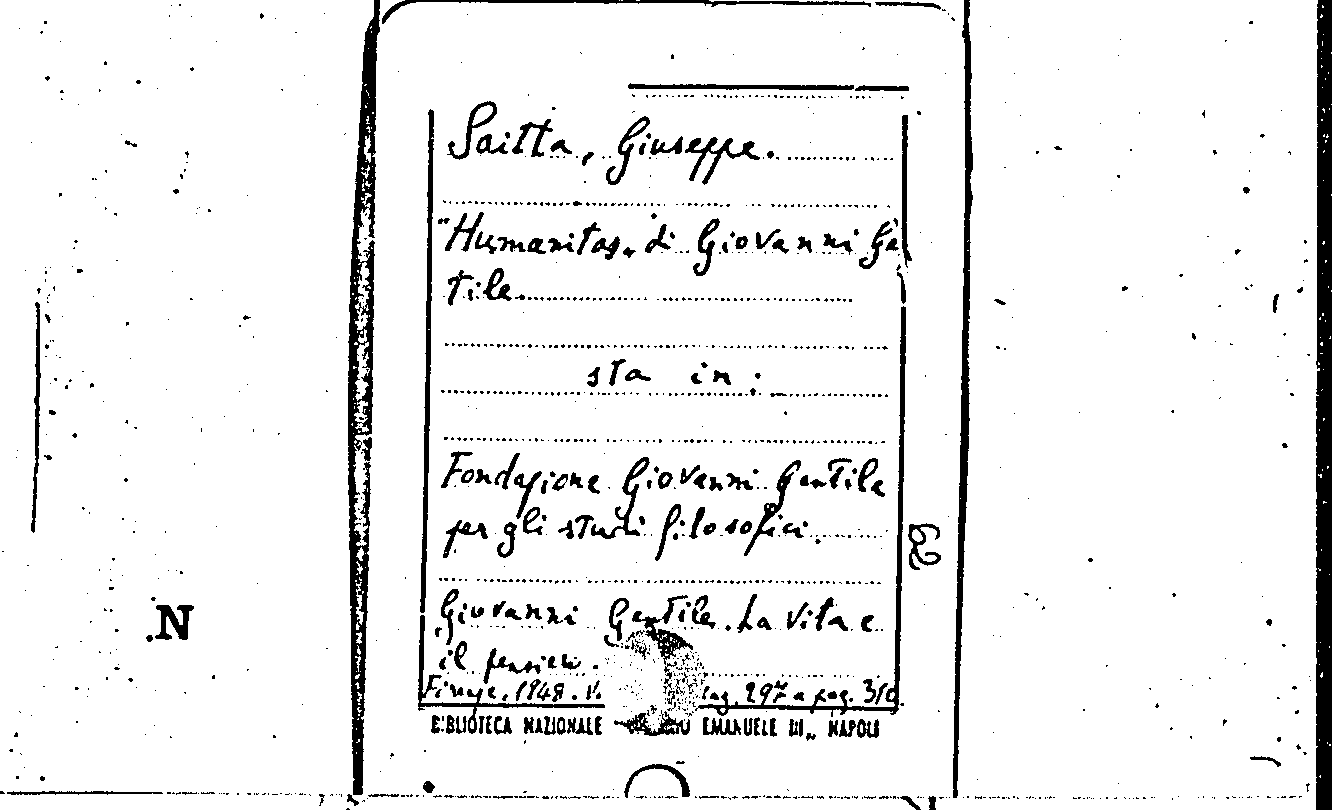 Saitta, Giuseppe.
"Humanitas„ di Giovanni Ge
tile.
sta in:
Fondazione Giovanni Gentile
per gli studi filosofici.
62
Giovanni Gentile. La vita e
il pensiero.
Firenze. 1948. V. pag. 297 a pag. 310
BIBLIOTECA NAZIONALE EMANUELE III„ NAPOLI
N